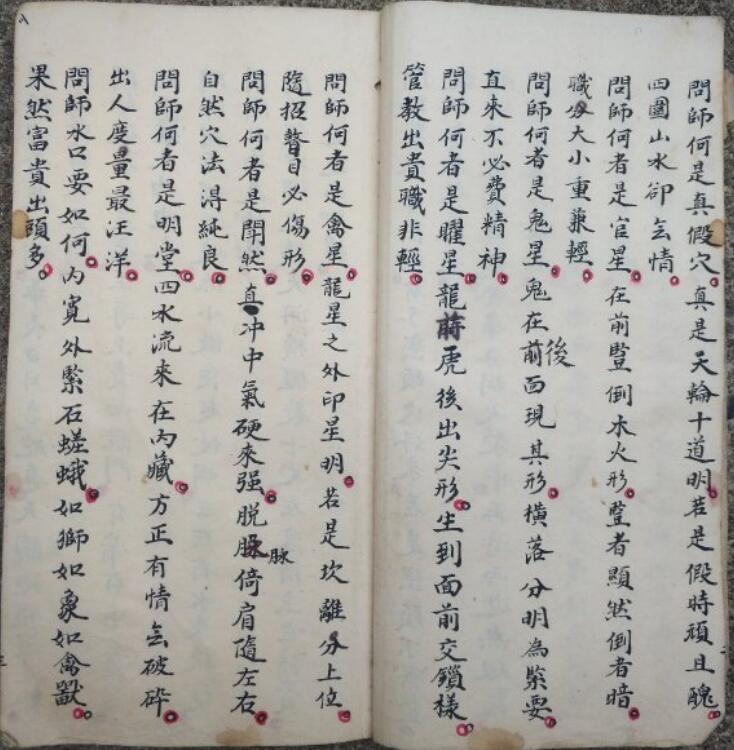 問師何是真假穴真是天輪十道明若是假時頑且醜
四圍山水卻無情
問師何者是官星在前豎倒木火形豎者顯然倒者暗
職分大小重兼輕
問師何者是鬼星鬼在前面現其形橫落分明為緊要
後
直來不必費精神
問師何者是曜星龍前虎後出尖形生到面前交鎖樣
管教出貴職非輕
問師何者是禽星龍星之外印星明若是坎離分上位
隨招瞽目必傷形
問師何者是閗然直冲中氣硬來强脱脉倚肩隨左右
脉
自然穴法得純良
問師何者是明堂四水流來在內藏方正有情無破碎
出人度量最汪洋
問師水口要如何內寬外緊石嵯峨如獅如象如禽獸
果然富貴出頭多